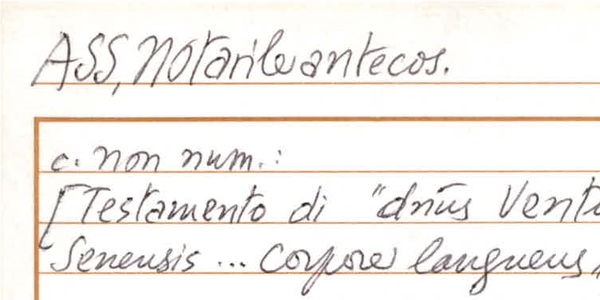 ASS, Notarile antecos.
c. non num.:
[Testamento di "dn̄us Ventu
Senensis ... corpore languens,